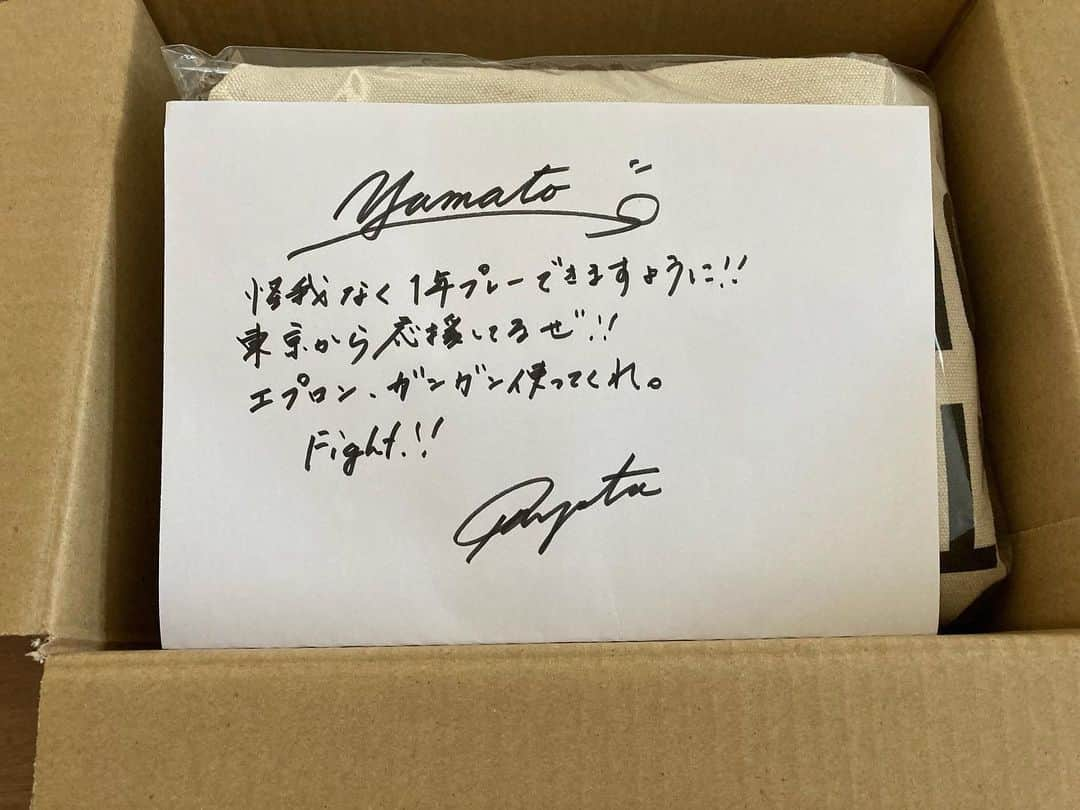 Yamato
怪我なく1年プレーできますように!!
東京から応援してるぜ!!
エプロン、ガンガン使ってくれ。
Fight!!
Ryota